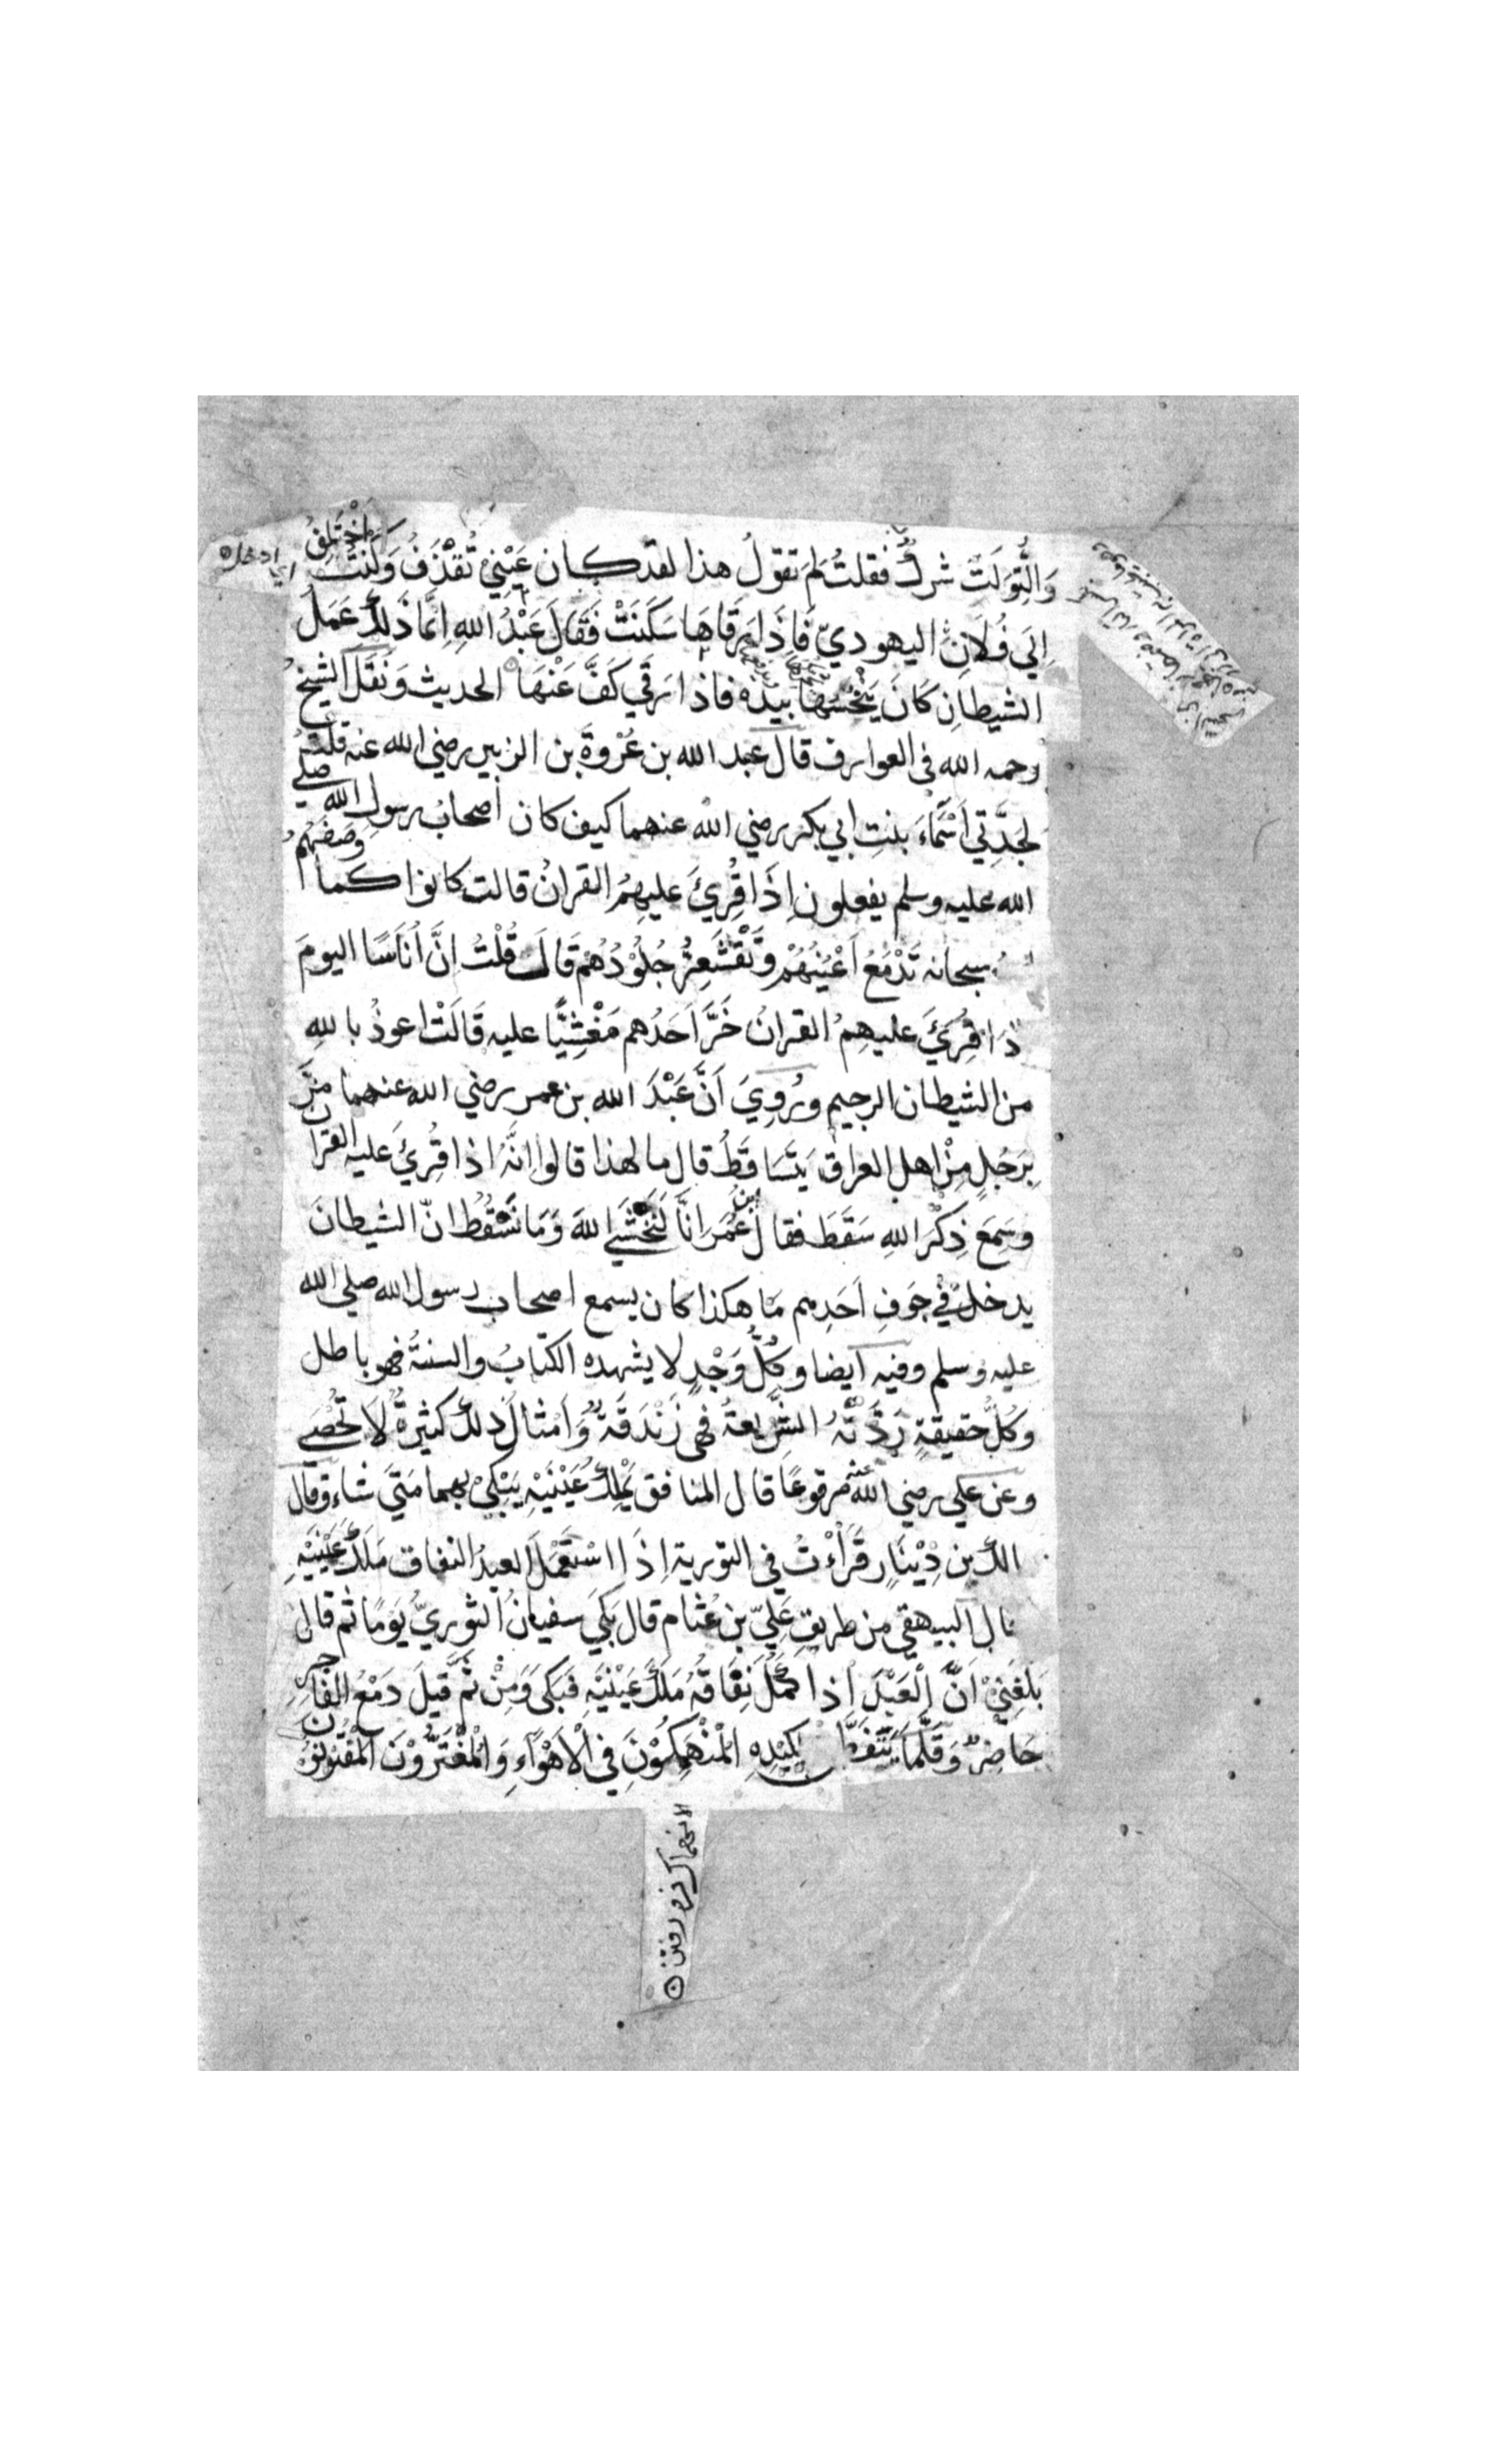 وَالتِّوَلَتُ شركٌ فقلتُ لِمَ تقولُ هذا لقد كان عَيْنِيْ تُقْذَفُ وَكُنْتُ اَخْتَلِفُ
اِلَى فُلَانٍ اليهوديّ فَاِذَا رَقاهَا سَكَنَتْ فَقَالَ عَبْدُ اللهِ اِنَّمَا ذَلِكَ عَمَلُ
الشيطانِ كَانَ يَنْخُسُهَا بيَدِهٖ فاذا رُقي كَفَّ عَنْهَا الحديث وَنَقَلَ الشيخُ
رحمه الله فى العوارف قال عبد الله بن عُرْوَةَ بن الزبير رضي الله عنه قلتُ
لِجَدَّتِي اَسْمَاءَ بنتِ ابي بكر رضي الله عنهما كيف كان اصحابُ رسولِ الله صلى
الله عليه وسلم يفعلون اِذَا قُرِئَ عليهِمُ القرانُ قالت كانوا كما وَصَفَهُمُ
سبحانه تَدْمَعُ اَعْيُنُهُمْ وَتَقْشَعِرُّ جُلُوْدُهُمْ قَالَ قُلْتُ اِنَّ اُنَاسًا اليومَ
ذَا قُرِئَ عليهِمُ القرانُ خَرَّ اَحَدُهم مَغْشِيًّا عليه قَالَتْ اعوذُ باللهِ
من الشيطان الرجيم ورُوِيَ اَنَّ عَبْدَ الله بن عمر رضي الله عنهما مَرَّ
بِرَجُلٍ مِنْ اهل العراق يَتَسَاقَطُ قال ما لهذا قالوا اِنَّهُ اذا قُرِئَ عليه القران
وسَمِعَ ذِكْرَ اللهِ سَقَطَ فقال ابن عُمَرَ اِنَّا لَنَخْشَى اللهَ وَمَا نَسْقُطُ انّ الشيطانَ
يدخلُ في جَوفِ اَحَدِهم مَا هكذا كان يسمع اصحاب رسول الله صلى الله
عليه وسلم وفيه ايضا وكُلُّ وَجْدٍ لا يشهده الكتابُ والسنةُ فهو باطل
وكُلُّ حقيقةٍ رَدَّتْهُ الشَّرِيعةُ فهى زَنْدَقَةٌ وَاَمْثالُ ذلك كثيرةٌ لَا تُحْصَى
وعن على رضي الله عنه مرفوعًا قال المنافق يَمْلِكُ عَيْنَيْهِ يَبْكِيْ بهما مَتَى شاء وقال
الك بن دِيْنَارٍ قَرَأْتُ في التورية اِذَا اسْتَعْمَلَ العبدُ النفاق مَلَكَ عَيْنَيْهِ
قال البيهقي من طريقِ عَلِيّ بن عُثام قال بَكَى سفيانُ الثوريُّ يَومًا ثم قال
بَلَغَنِيْ اَنَّ الْعَبْدَ اذا كَمُلَ نِفَاقُهُ مَلَكَ عَيْنَيْهِ فَبَكَى وَمِنْ ثَمَّ قِيلَ دَمْعُ الفَاجِرِ
حَاضِرٌ وَقَلَّمَا يَتَفَطَّنُ لِكَيْدِهِ الْمُنْهَمِكُوْنَ فِي الْاَهْوَاءِ وَالْمُغْتَرُّوْنَ الْمَفْتُونُونَ